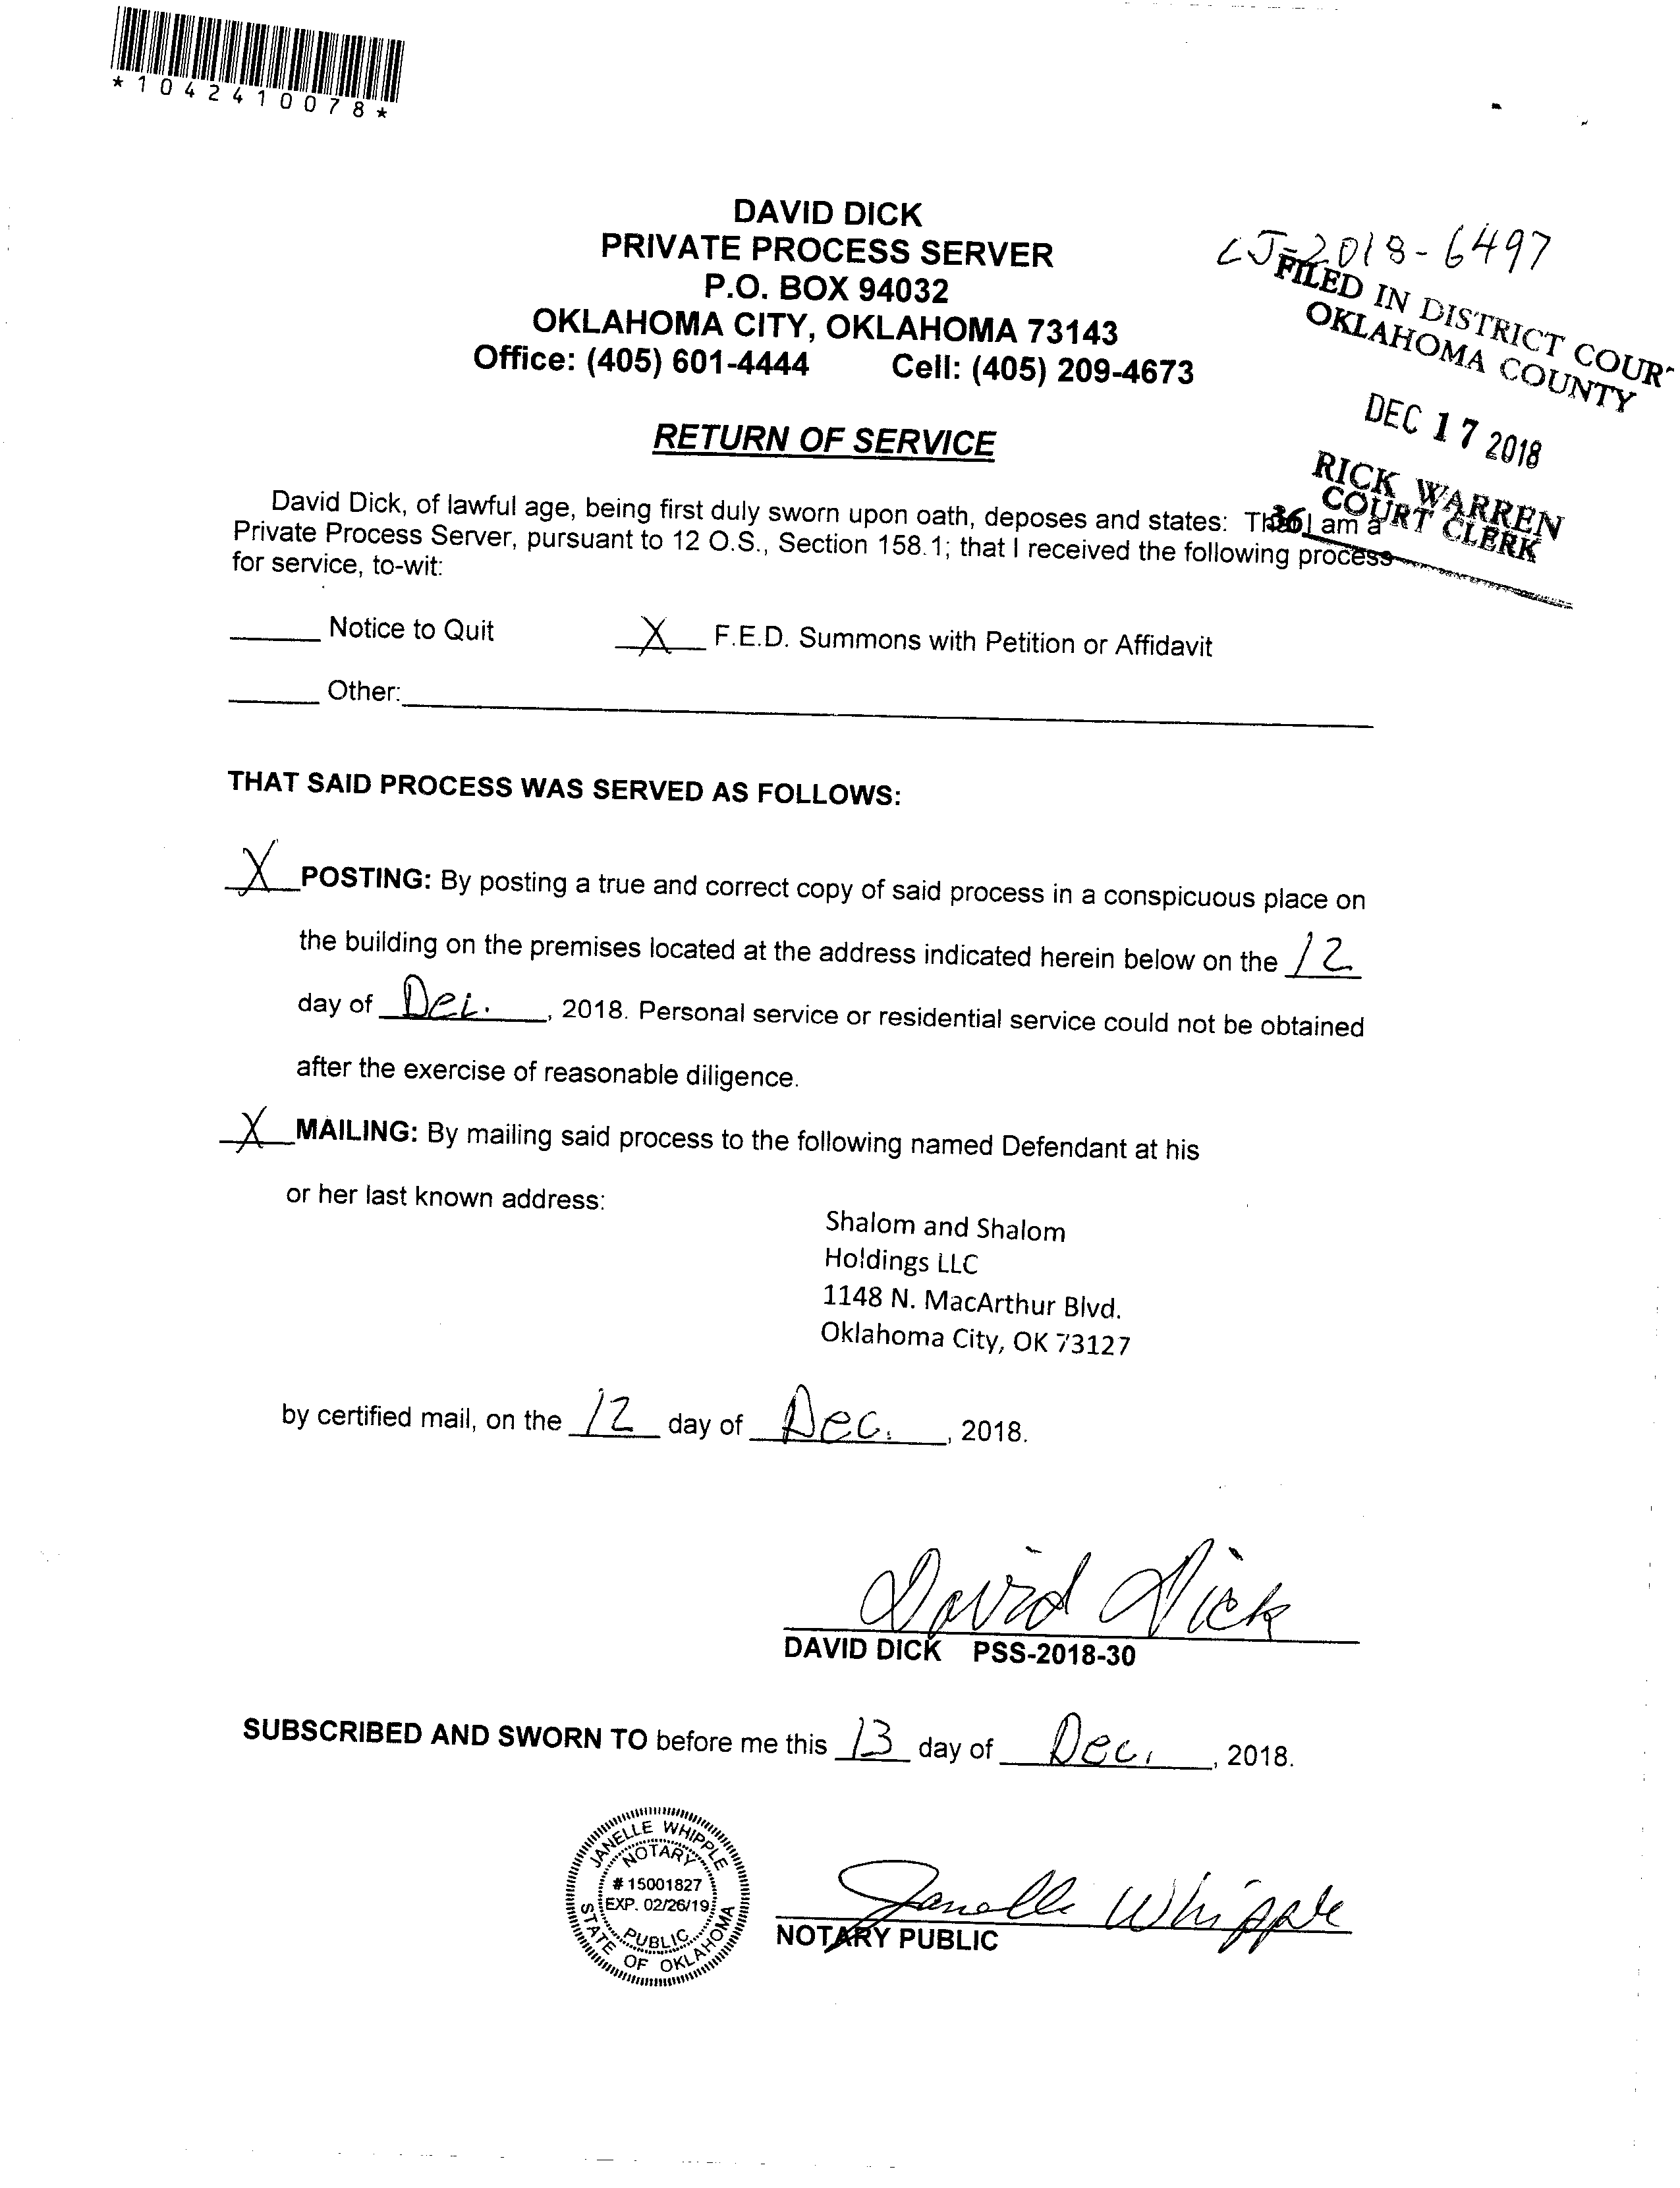 *1042410078*
DAVID DICK
PRIVATE PROCESS SERVER
P.O. BOX 94032
OKLAHOMA CITY, OKLAHOMA 73143
Office: (405) 601-4444 Cell: (405) 209-4673
CJ-2018-6497
FILED IN DISTRICT COURT
OKLAHOMA COUNTY
DEC 17 2018
RICK WARREN
COURT CLERK
36
RETURN OF SERVICE
David Dick, of lawful age, being first duly sworn upon oath, deposes and states: That I am a
Private Process Server, pursuant to 12 O.S., Section 158.1; that I received the following process
for service, to-wit:
____ Notice to Quit X F.E.D. Summons with Petition or Affidavit
____ Other:____
THAT SAID PROCESS WAS SERVED AS FOLLOWS:
X POSTING: By posting a true and correct copy of said process in a conspicuous place on
the building on the premises located at the address indicated herein below on the 12
day of Dec. , 2018. Personal service or residential service could not be obtained
after the exercise of reasonable diligence.
X MAILING: By mailing said process to the following named Defendant at his
or her last known address:
Shalom and Shalom
Holdings LLC
1148 N. MacArthur Blvd.
Oklahoma City, OK 73127
by certified mail, on the 12 day of Dec. , 2018.
David Dick
DAVID DICK PSS-2018-30
SUBSCRIBED AND SWORN TO before me this 13 day of Dec. , 2018.
JANELLE WHIPPLE
NOTARY
# 15001827
EXP. 02/26/19
PUBLIC
STATE OF OKLAHOMA
Janelle Whipple
NOTARY PUBLIC